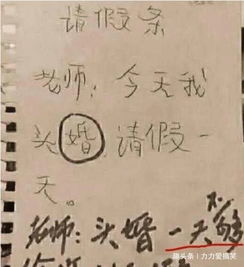 请假条
老师：今天我
头婚，请假一
天。
老师：头婚一天够
趣头条 | 力力爱搞笑